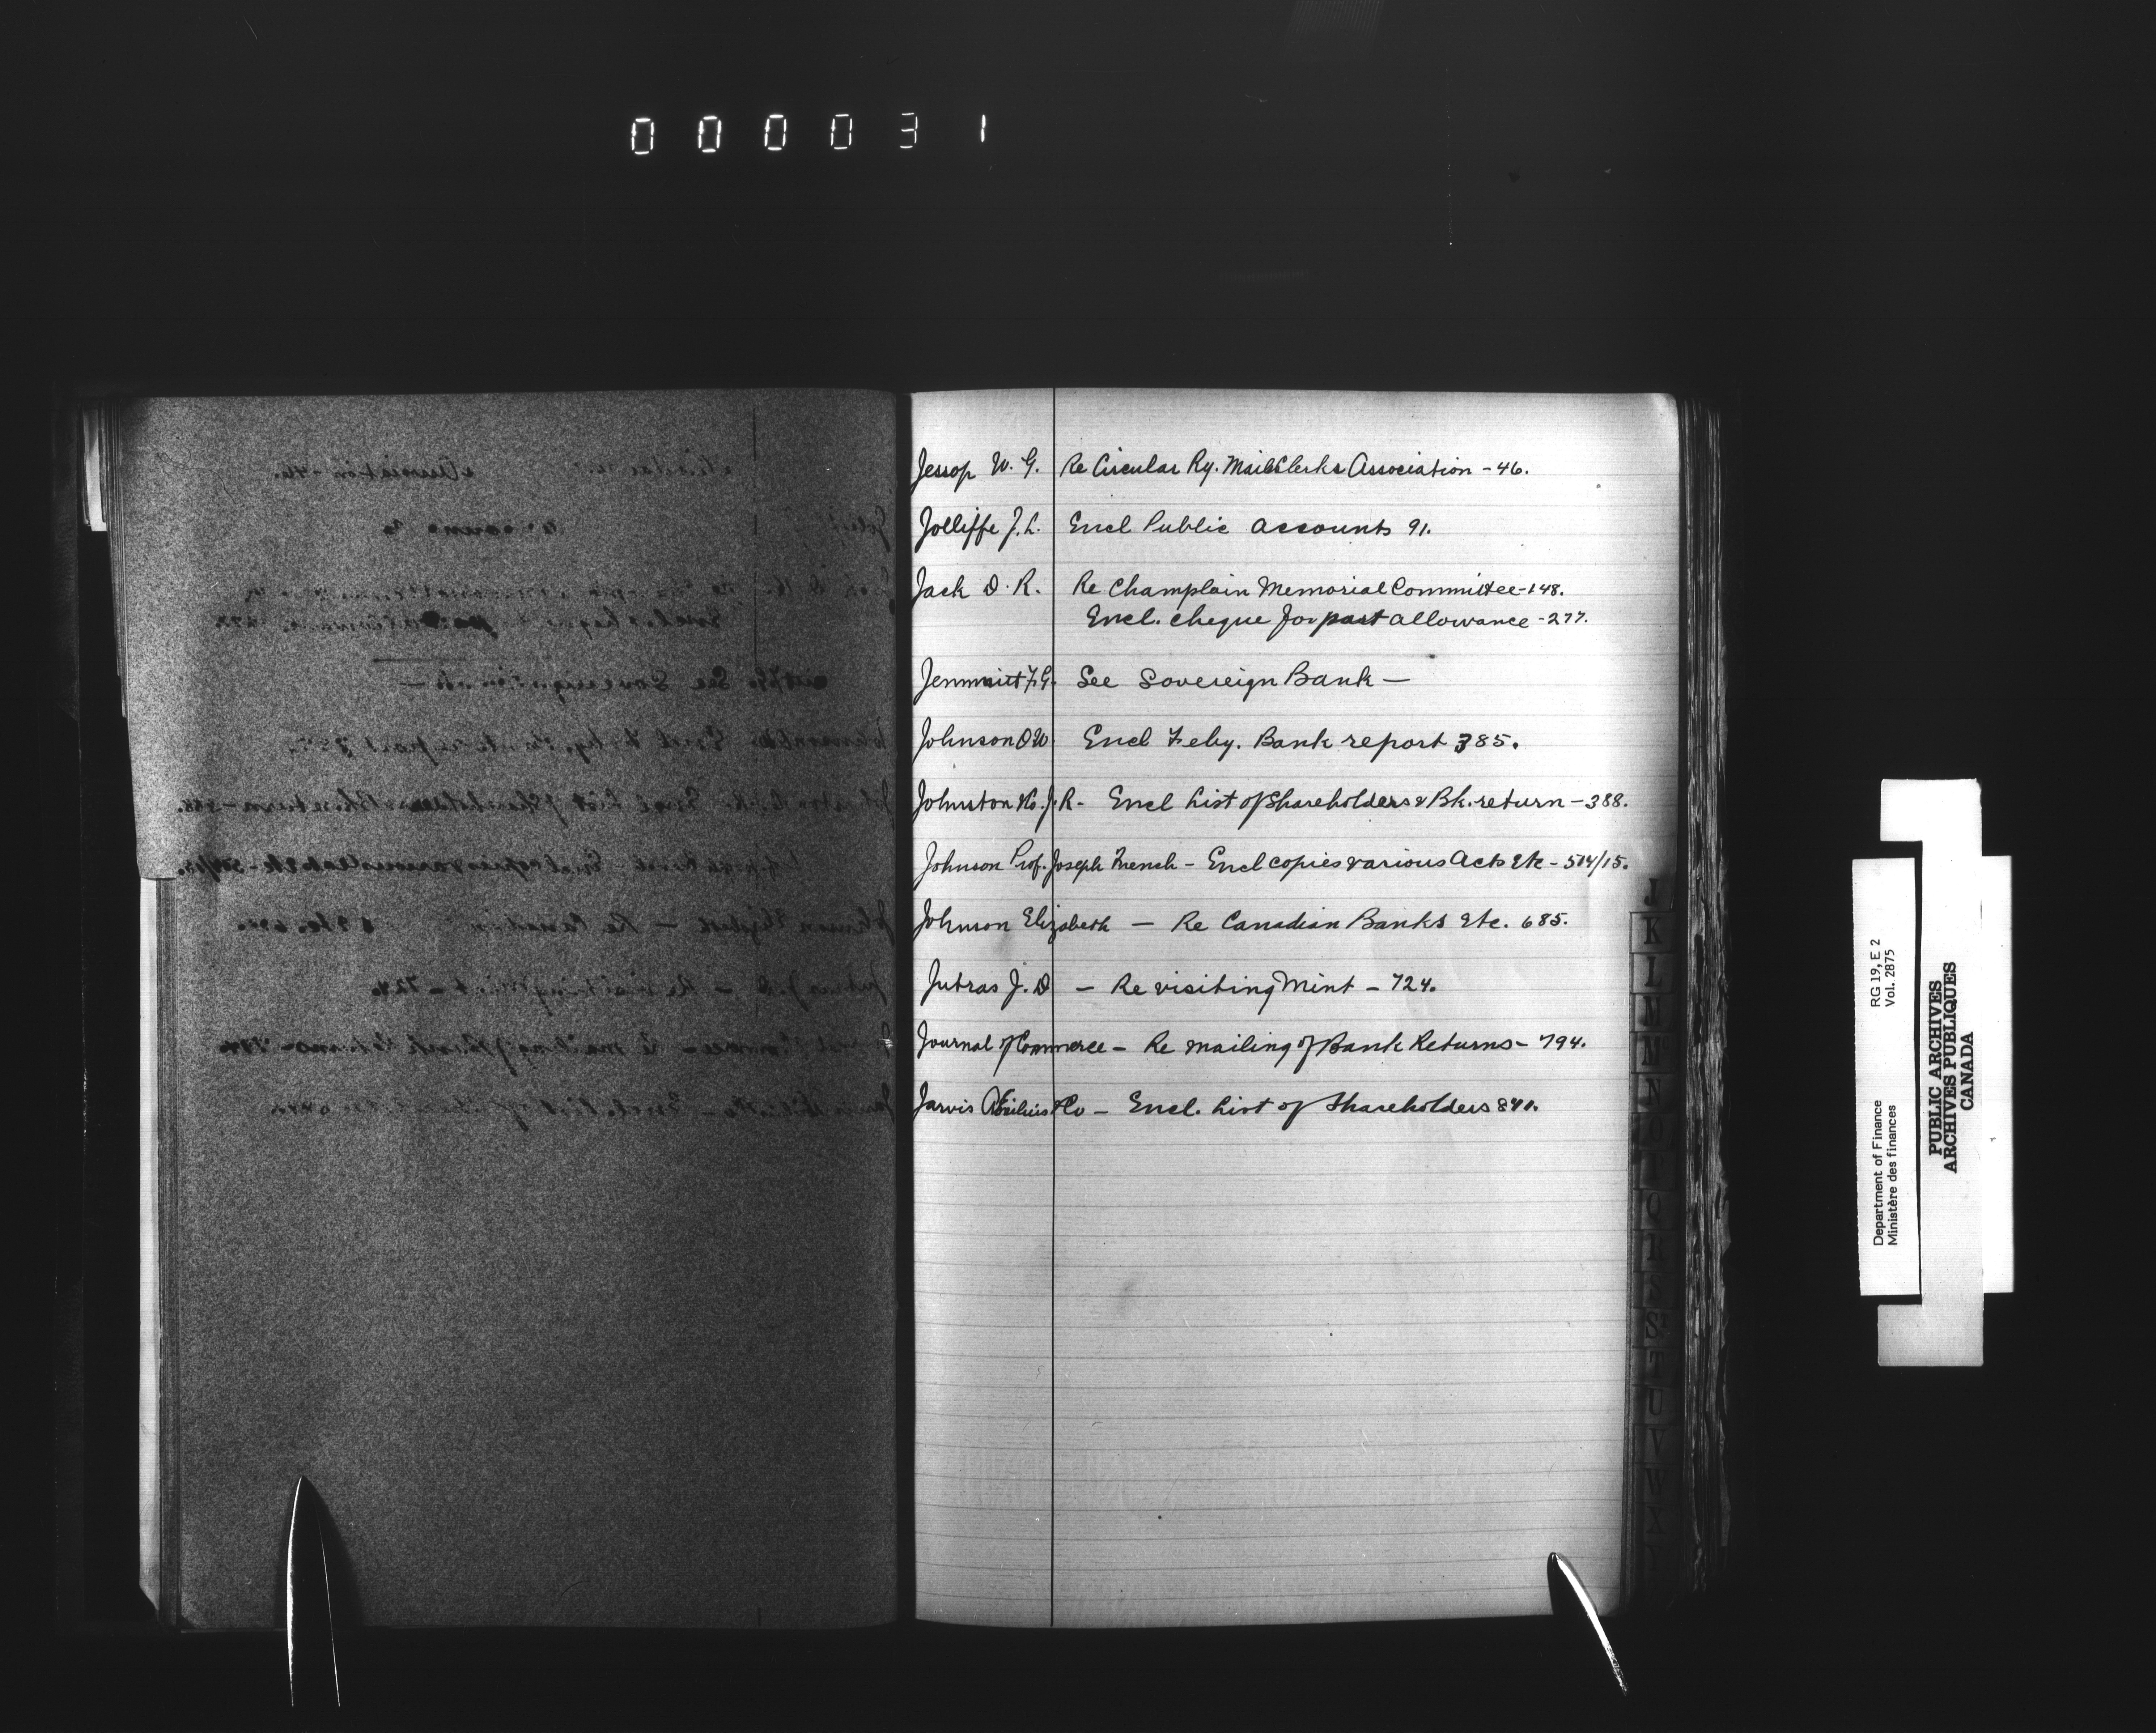 000031
Jessop W. G. Re Circular Ry. Mail Clerks Association - 46.
Jolliffe J. L. Encl Public Accounts 91.
Jack D. R. Re Champlain Memorial Committee - 148.
Encl. cheque for past allowance - 277.
F. G. See Sovereign Bank —
Johnson O W Encl Feby. Bank report 385.
Johnston & Co. J. R - Encl List of Shareholders & Bk. return - 388.
Johnson Prof. Joseph French - Encl copies various Acts Etc - 514/15.
Johnson Elizabeth — Re Canadian Banks Etc. 685.
Jutras J. D - Re visiting Mint - 724.
Journal of Commerce - Re mailing of Bank Returns - 794.
Jarvis Æmilius & Co - Encl. List of Shareholders 841.
J
K
L
M
N
O
Q
R
S
T
U
V
W
X
RG 19, E 2
Vol. 2875
Department of Finance
Ministère des finances
PUBLIC ARCHIVES
ARCHIVES PUBLIQUES
CANADA